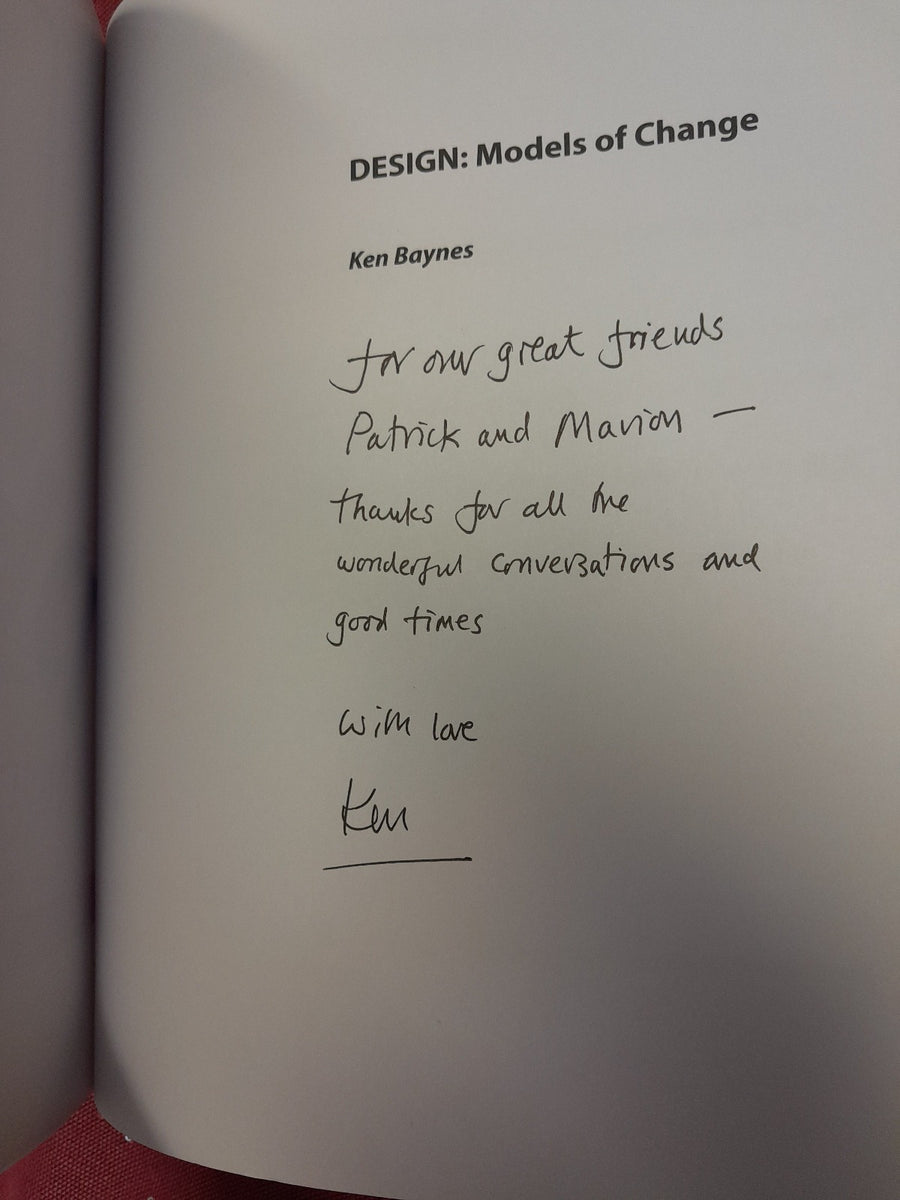 DESIGN: Models of Change
Ken Baynes
for our great friends
Patrick and Marion —
thanks for all the
wonderful conversations and
good times
with love
Ken